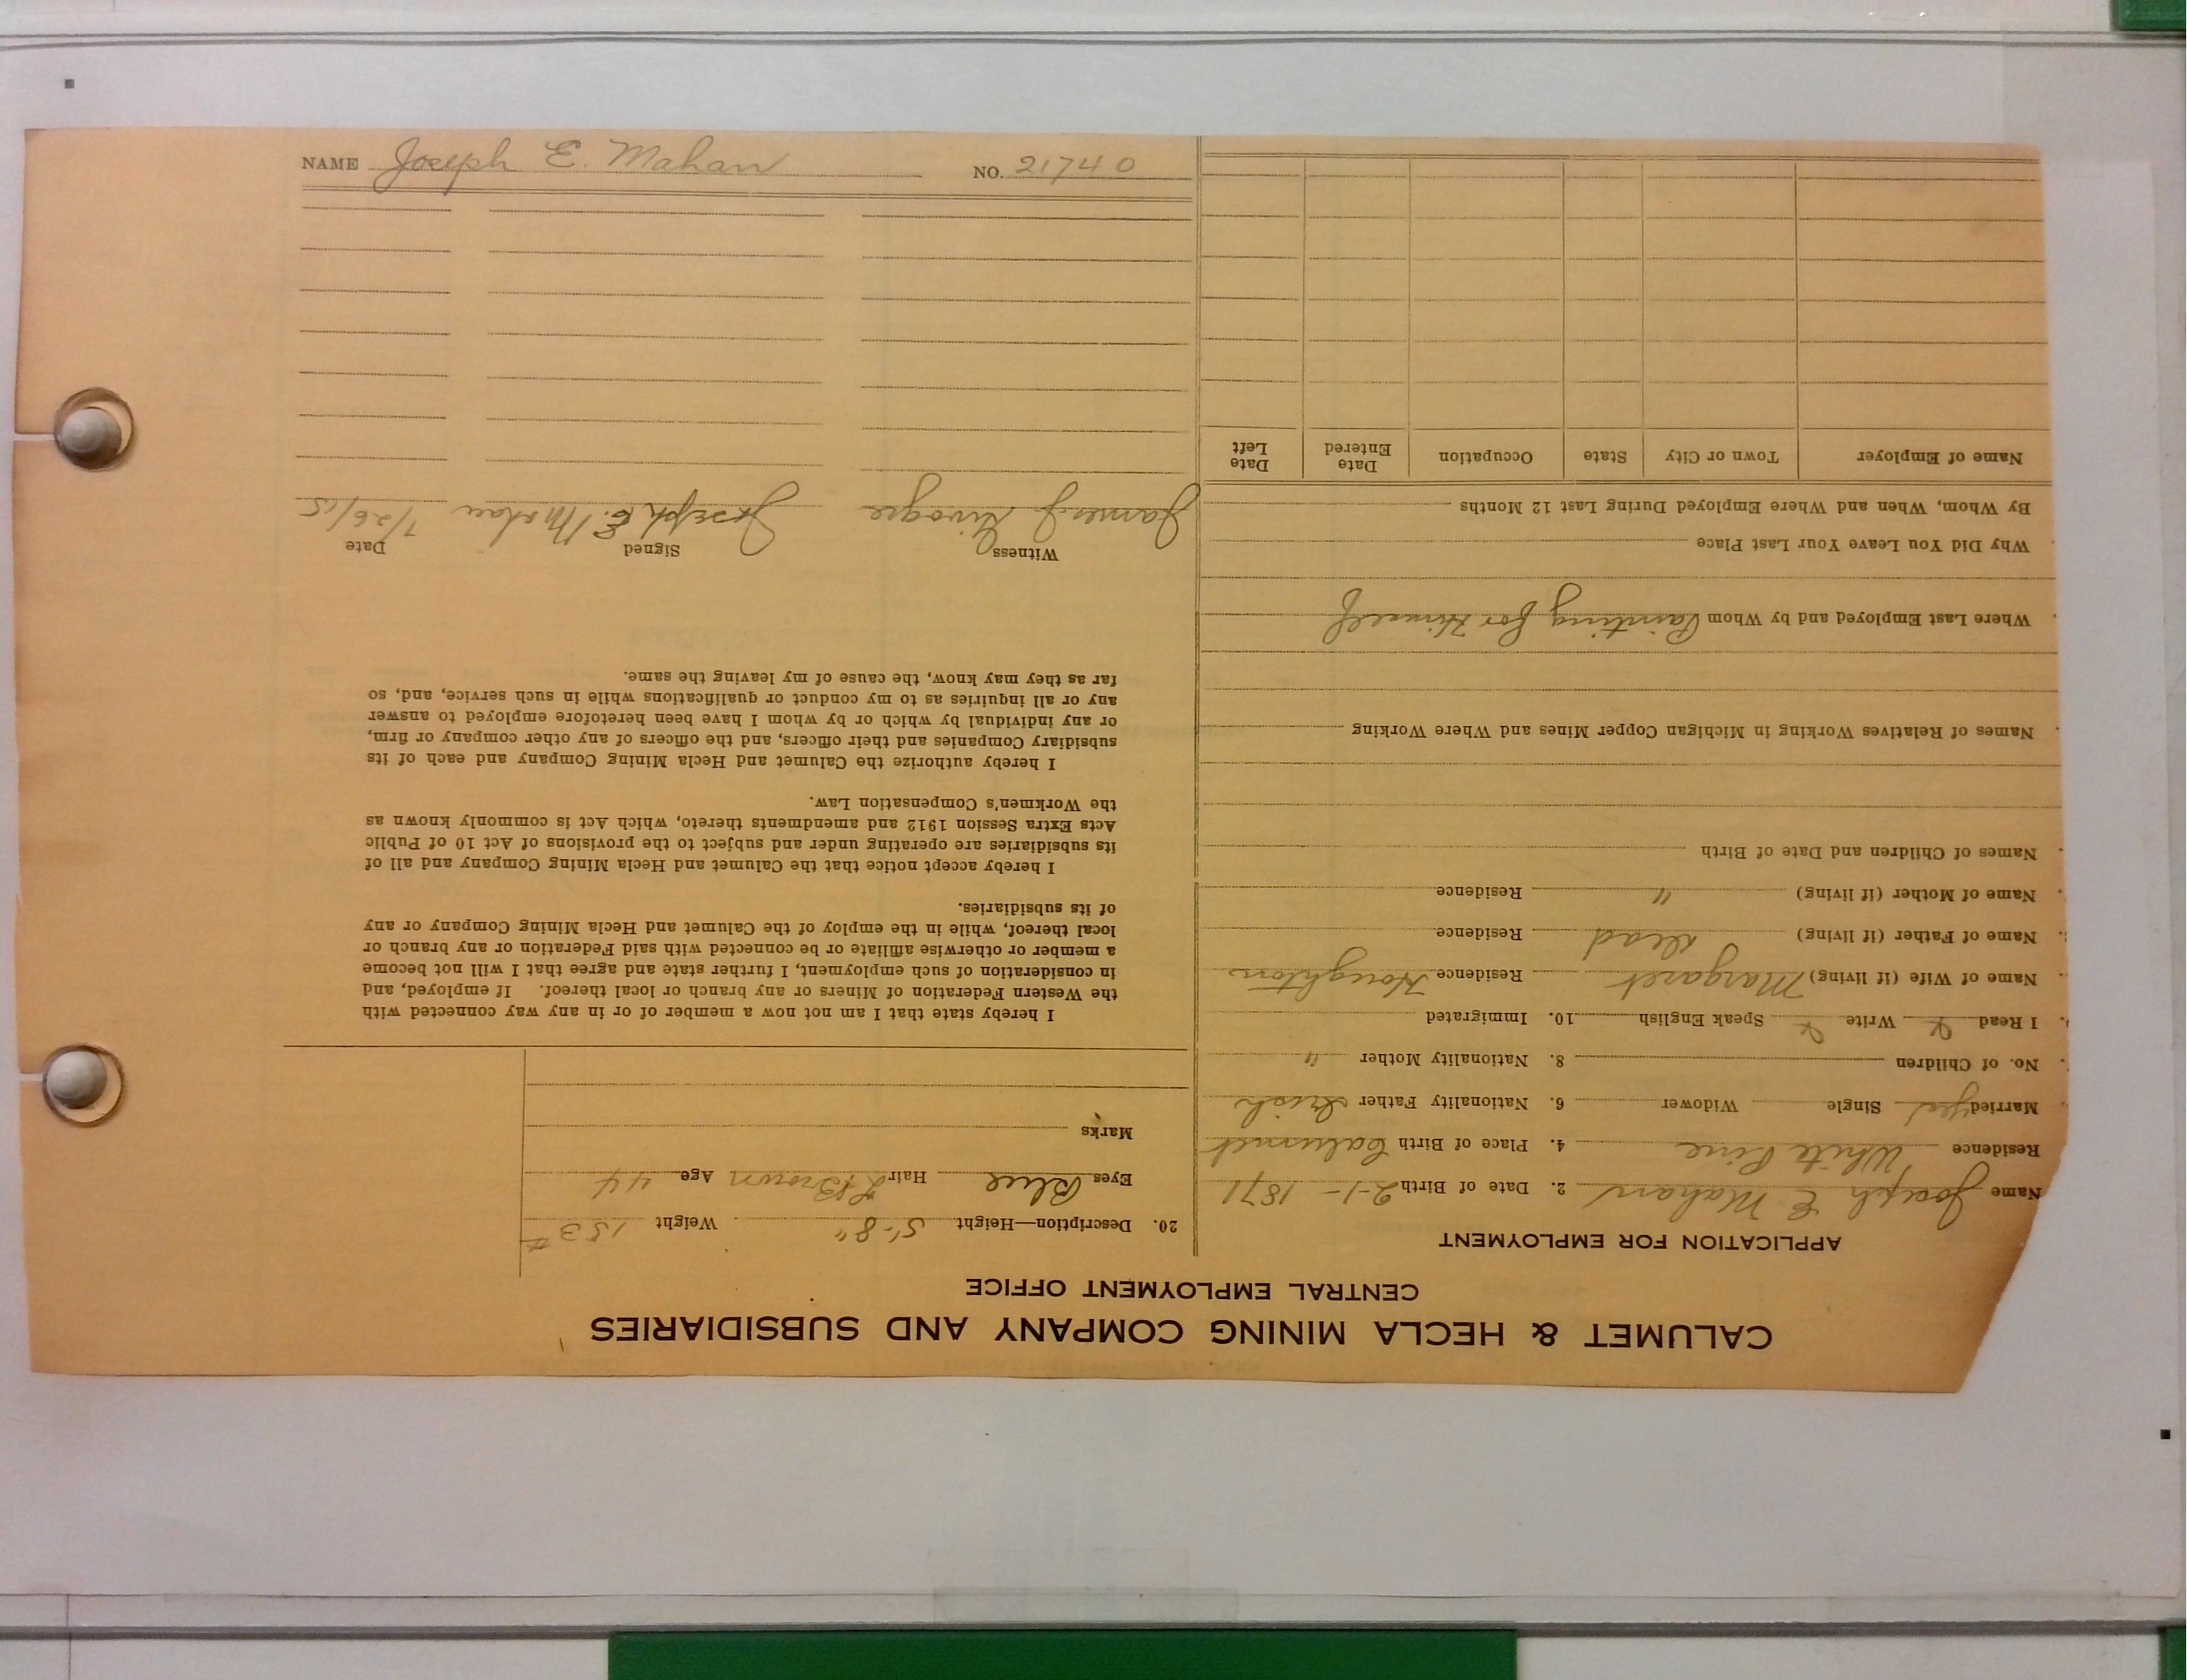 NAME Joseph E. Mahan NO. 21740
CALUMET & HECLA MINING COMPANY AND SUBSIDIARIES
CENTRAL EMPLOYMENT OFFICE
APPLICATION FOR EMPLOYMENT
Name Joseph E Mahan 2. Date of Birth 2-1-1871
Residence White Pine 4. Place of Birth Calumet
Married yes Single Widower 6. Nationality Father Irish
No. of Children 8. Nationality Mother "
I Read Write Speak English 10. Immigrated
Name of Wife (if living) Margaret Residence Houghton
Name of Father (if living) dead Residence
Name of Mother (if living) " Residence
Names of Children and Date of Birth
Names of Relatives Working in Michigan Copper Mines and Where Working
Where Last Employed and by Whom Painting for Himself
Why Did You Leave Your Last Place
By Whom, When and Where Employed During Last 12 Months
Name of Employer Town or City State Occupation Date Entered Date Left
20. Description—Height 5'-8" Weight 153 #
Eyes Blue Hair L Brown Age 44
Marks
I hereby state that I am not now a member of or in any way connected with
the Western Federation of Miners or any branch or local thereof. If employed, and
in consideration of such employment, I further state and agree that I will not become
a member or otherwise affiliate or be connected with said Federation or any branch or
local thereof, while in the employ of the Calumet and Hecla Mining Company or any
of its subsidiaries.
I hereby accept notice that the Calumet and Hecla Mining Company and all of
its subsidiaries are operating under and subject to the provisions of Act 10 of Public
Acts Extra Session 1912 and amendments thereto, which Act is commonly known as
the Workmen's Compensation Law.
I hereby authorize the Calumet and Hecla Mining Company and each of its
subsidiary Companies and their officers, and the officers of any other company or firm,
or any individual by which or by whom I have been heretofore employed to answer
any or all inquiries as to my conduct or qualifications while in such service, and, so
far as they may know, the cause of my leaving the same.
Witness Signed Date
James J Joseph E. Mahan 7/26/15